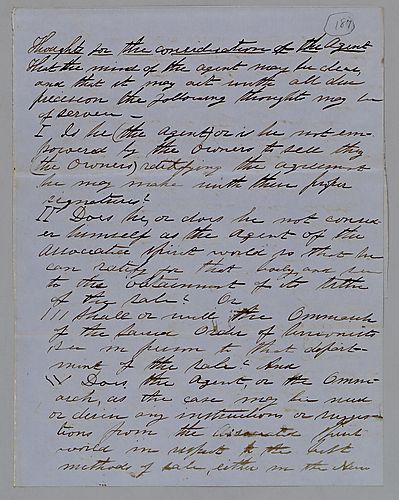 187
Thoughts for the consideration of the Agent
That the mind of the agent may be clear,
and that it may act with all due
precision the following thoughts may be
of service –
I Is he (the Agent) or is he not em-
powered by the Owners to sell they
the Owners) ratifying the agreement
he may make with their proper
signatures?
II Does he, or does he not consid-
er himself as the Agent of the
Associated Spirit world so that he
can ratify for that body, and see
to the obtainment of its tithe
of the sale? Or
III Shall or will the Ommarch
of the Sacred Order of Unionists
see in person to that depart-
ment of the sale? And
IV Does the Agent, or the Omm-
arch, as the case may be need
or desire any instructions or sugges-
tions from the Associated Spirit
world in respect to the best
methods of sale, either in the New